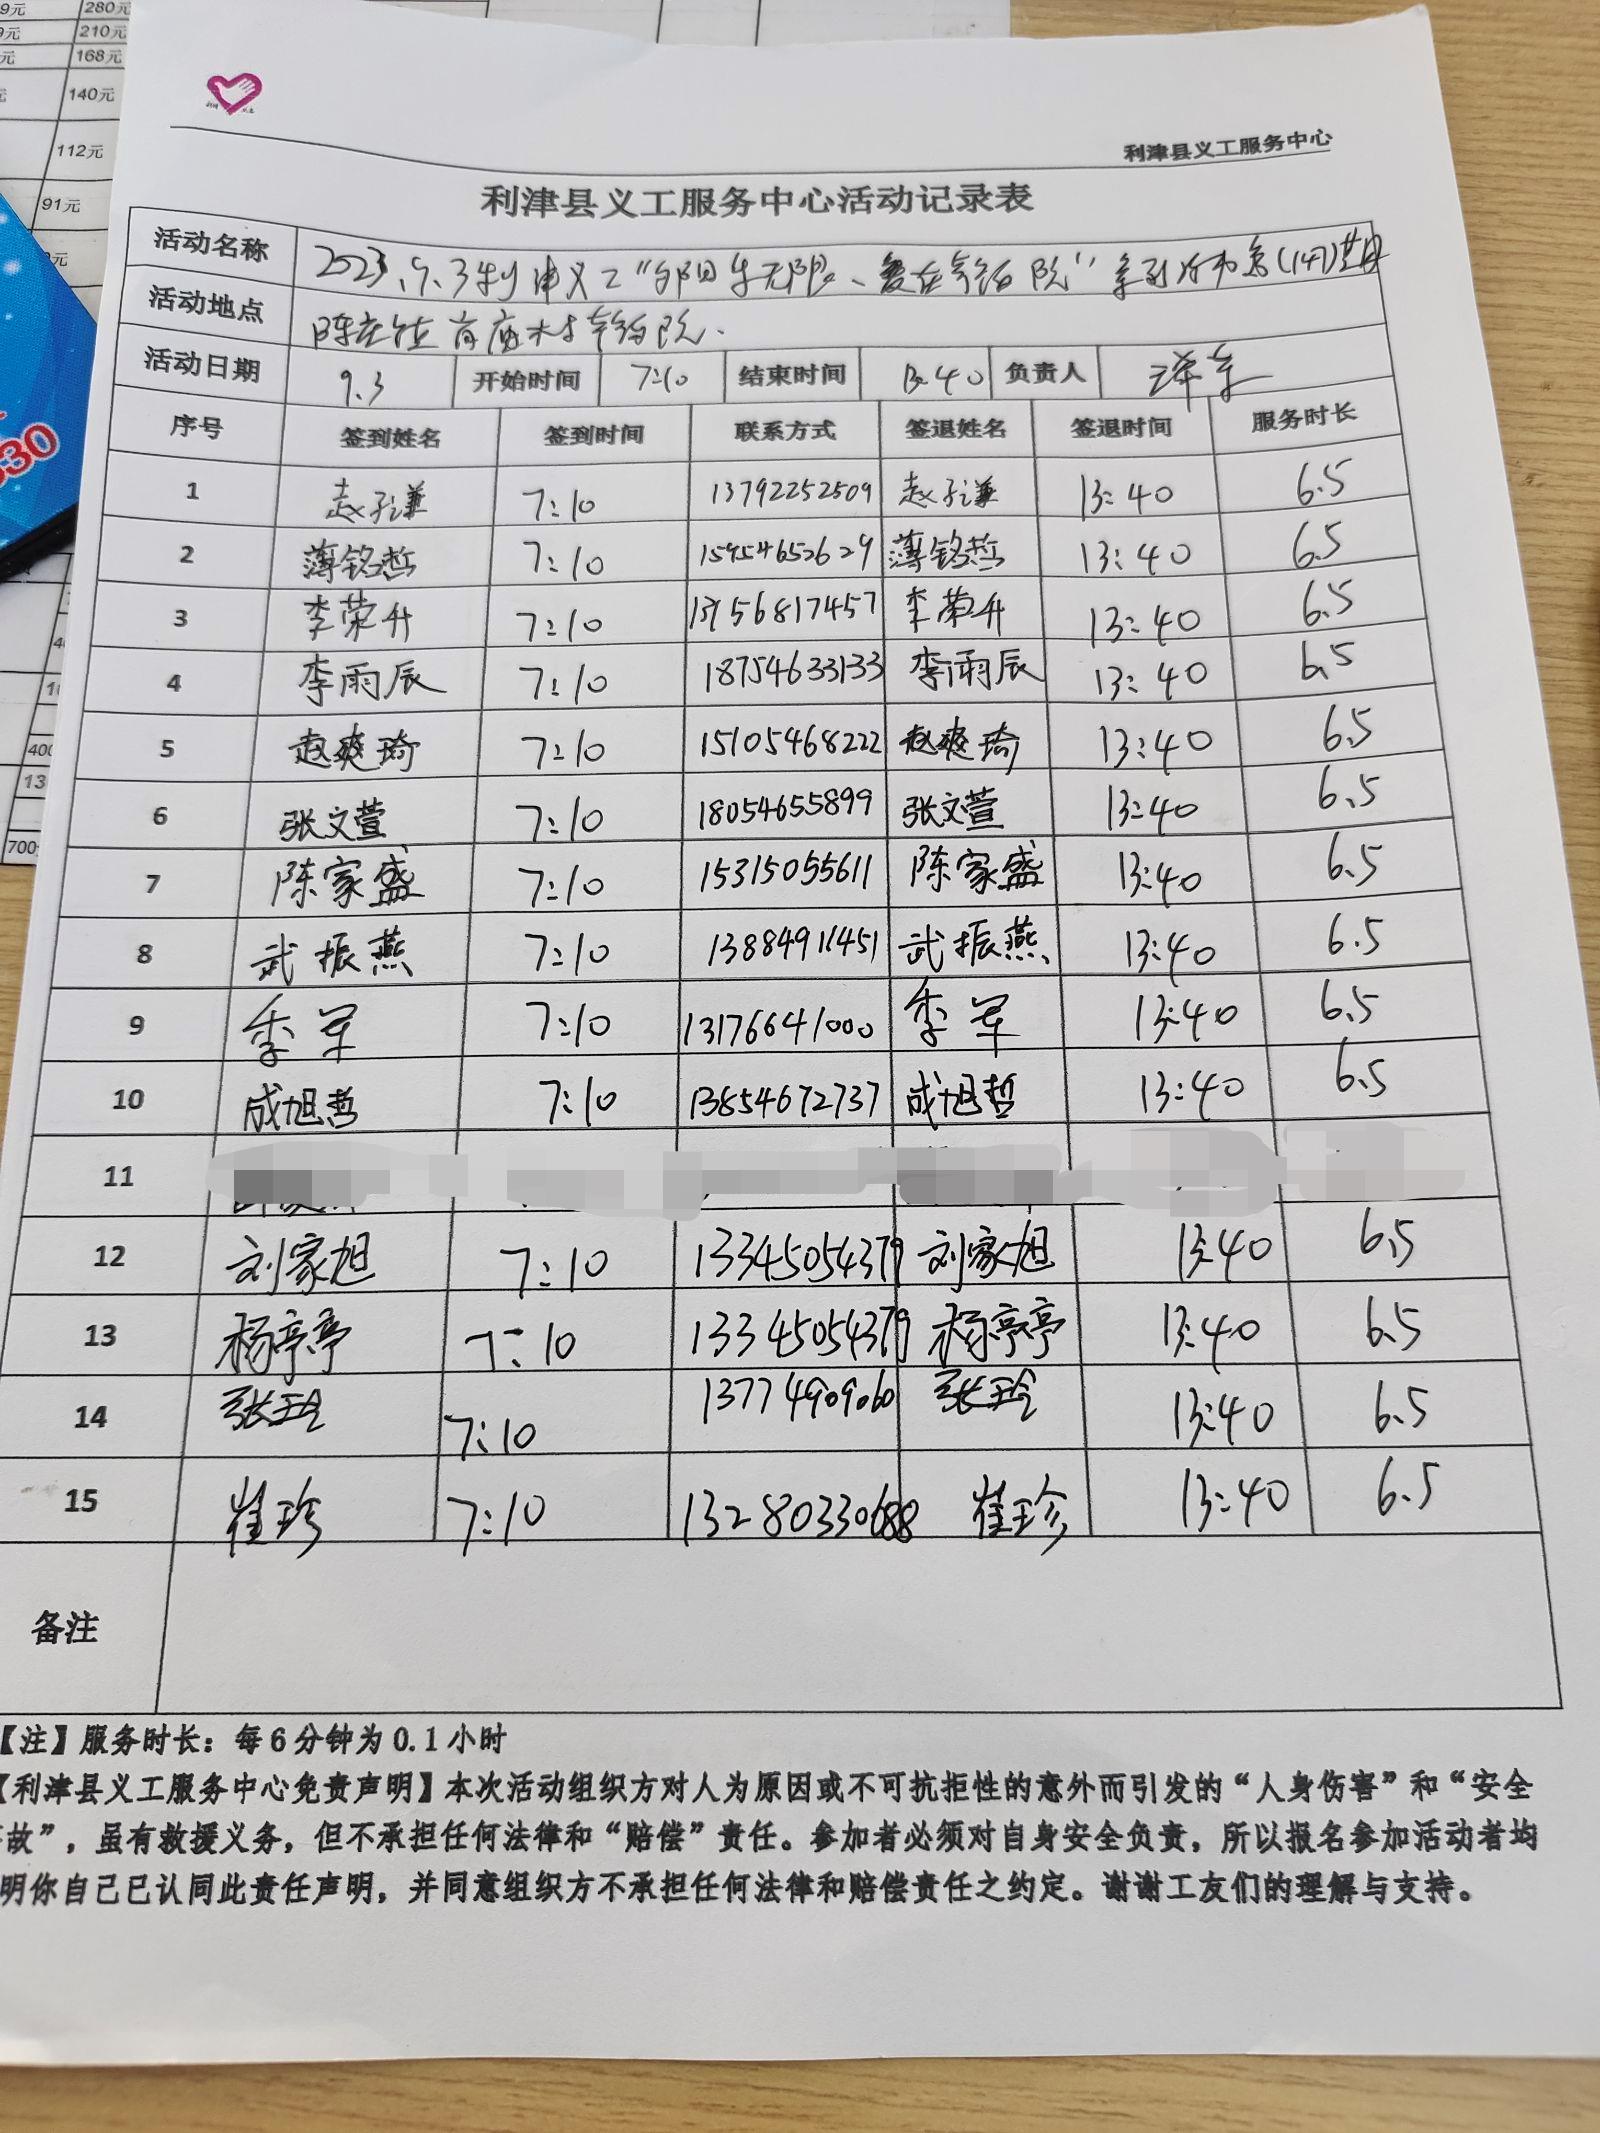 9元 280元
9元 210元
元 168元
140元
112元
91元
元
30
40
400
13
700
利津县义工服务中心
利津县义工服务中心活动记录表
活动名称 2023.9.3利津义工“夕阳乐无限、爱在敬老院”系列活动 (147)
活动地点 陈庄镇 村敬老院.
活动日期 9.3 开始时间 7:10 结束时间 13:40 负责人 泽东
序号 签到姓名 签到时间 联系方式 签退姓名 签退时间 服务时长
1 赵子谦 7:10 13792252509 赵子谦 13:40 6.5
2 薄铭哲 7:10 15954652629 薄铭哲 13:40 6.5
3 李荣升 7:10 李荣升 13:40 6.5
4 李雨辰 7:10 18754633133 李雨辰 13:40 6.5
5 赵爽琦 7:10 15105468222 赵爽琦 13:40 6.5
6 张文萱 7:10 18054655899 张文萱 13:40 6.5
7 陈家盛 7:10 15315055611 陈家盛 13:40 6.5
8 武振燕 7:10 13884911451 武振燕 13:40 6.5
9 季军 7:10 13176641000 季军 13:40 6.5
10 成旭哲 7:10 13854672737 成旭哲 13:40 6.5
11
12 刘家旭 7:10 13345054379 刘家旭 13:40 6.5
13 杨亭亭 7:10 13345054379 杨亭亭 13:40 6.5
14 张玲 7:10 13774909060 张玲 13:40 6.5
15 崔珍 7:10 13280330688 崔珍 13:40 6.5
备注
【注】服务时长：每6分钟为0.1小时
【利津县义工服务中心免责声明】本次活动组织方对人为原因或不可抗拒性的意外而引发的“人身伤害”和“安全
故”，虽有救援义务，但不承担任何法律和“赔偿”责任。参加者必须对自身安全负责，所以报名参加活动者均
明你自己已认同此责任声明，并同意组织方不承担任何法律和赔偿责任之约定。谢谢工友们的理解与支持。